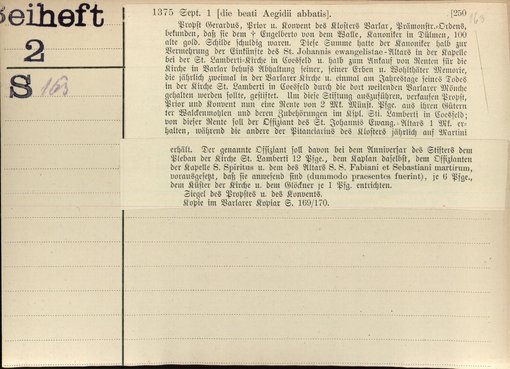 Beiheft
2
S 163
1375 Sept. 1 [die beati Aegidii abbatis]. [250
163
Propst Gerardus, Prior u. Konvent des Klosters Varlar, Prämonstr.-Ordens,
bekunden, daß sie dem † Engelberto von dem Walle, Kanoniker in Dülmen, 100
alte gold. Schilde schuldig waren. Diese Summe hatte der Kanoniker halb zur
Vermehrung der Einkünfte des St. Johannis ewangelistae-Altars in der Kapelle
bei der St. Lamberti-Kirche in Coesfeld u. halb zum Ankauf von Renten für die
Kirche in Varlar behufs Abhaltung seiner, seiner Erben u. Wohlthäter Memorie,
die jährlich zweimal in der Varlarer Kirche u. einmal am Jahrestage seines Todes
in der Kirche St. Lamberti in Coesfeld durch die dort weilenden Varlarer Mönche
gehalten werden sollte, gestiftet. Um diese Stiftung auszuführen, verkaufen Propst,
Prior und Konvent nun eine Rente von 2 Mk. Münst. Pfge. aus ihren Gütern
ter Waldenmohlen und deren Zubehörungen im Kspl. Sti. Lamberti in Coesfeld;
von dieser Rente soll der Offiziant des St. Johannis Ewang.-Altars 1 Mk. er-
halten, während die andere der Pitanciarius des Klosters jährlich auf Martini
erhält. Der genannte Offiziant soll davon bei dem Anniversar des Stifters dem
Pleban der Kirche St. Lamberti 12 Pfge., dem Kaplan daselbst, dem Offizianten
der Kapelle S. Spiritus u. dem des Altars S. S. Fabiani et Sebastiani martirum,
vorausgesetzt, daß sie anwesend sind (dummodo praesentes fuerint), je 6 Pfge.,
dem Küster der Kirche u. dem Glöckner je 1 Pfg. entrichten.
Siegel des Propstes u. des Konvents.
Kopie im Varlarer Kopiar S. 169/170.